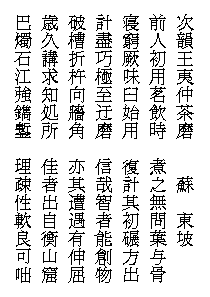 次韻王夷仲茶磨　　蘇　東坡
前人初用茗飲時　煮之無問葉与骨
寝窮厥味臼始用　復計其初碾方出
計盡巧極至迂磨　信哉智者能創物
破槽折杵向牆角　亦其遭遇有伸屈
歳久講求知処所　佳者出自衡山窟
巴燭石江強鐫鏨　理疎性軟良可咄